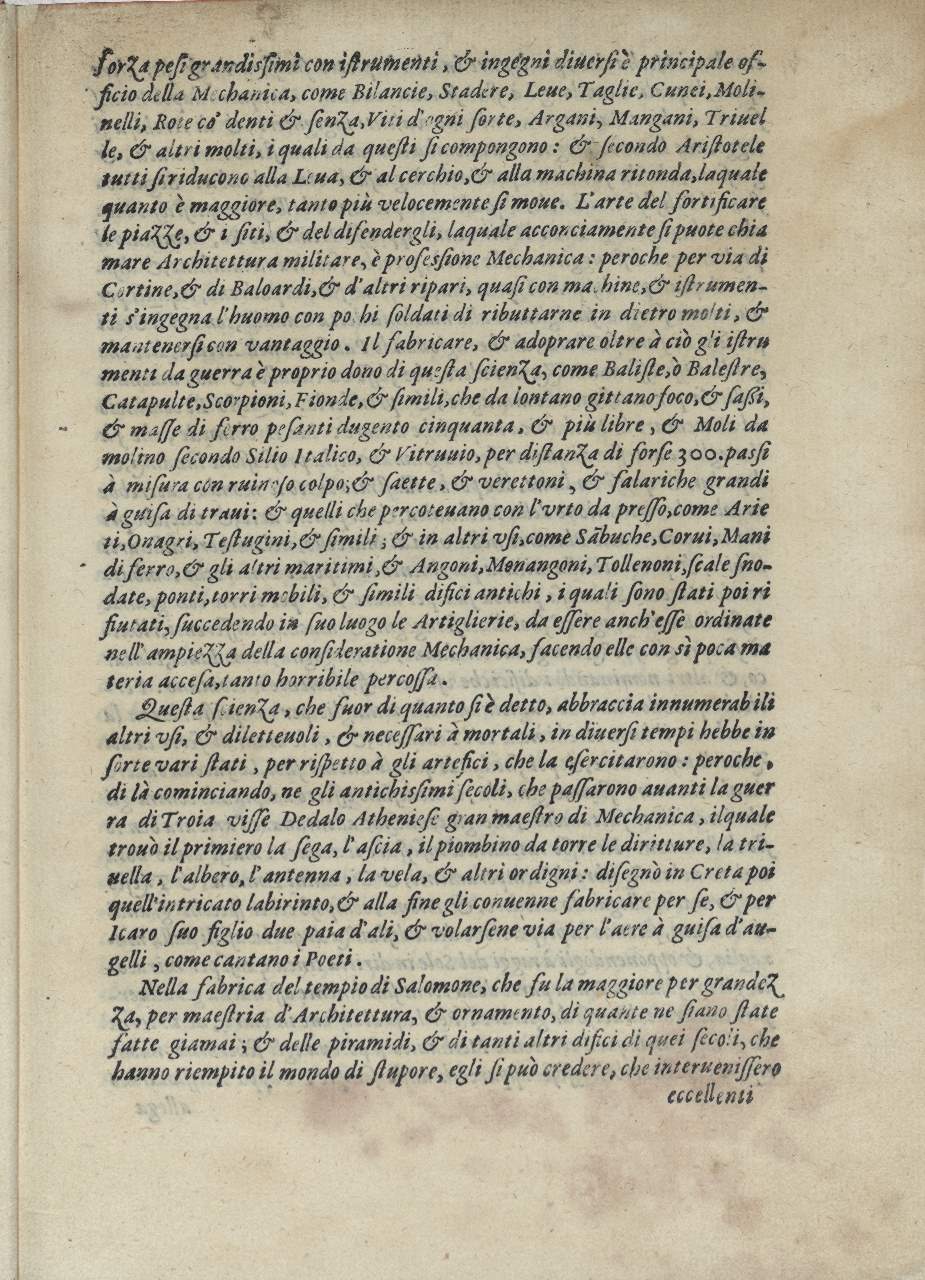 forza pesi grandissimi con istrumenti, & ingegni diuersi è principale of-
ficio della Mechanica, come Bilancie, Stadere, Leue, Taglie, Cunei, Moli-
nelli, Rote co' denti & senza, Viti d'ogni sorte, Argani, Mangani, Triuel
le, & altri molti, i quali da questi si compongono: & secondo Aristotele
tutti si riducono alla Leua, & al cerchio, & alla machina ritonda, laquale
quanto è maggiore, tanto più velocemente si moue. L'arte del fortificare
le piazze, & i siti, & del difendergli, laquale acconciamente si puote chia
mare Architettura militare, è professione Mechanica: peroche per via di
Cortine, & di Baloardi, & d'altri ripari, quasi con machine, & istrumen-
ti s'ingegna l'huomo con pochi soldati di ributtarne in dietro molti, &
mantenersi con vantaggio. Il fabricare, & adoprare oltre à ciò gli istru
menti da guerra è proprio dono di questa scienza, come Baliste, ò Balestre,
Catapulte, Scorpioni, Fionde, & simili, che da lontano gittano foco, & sassi,
& masse di ferro pesanti dugento cinquanta, & più libre, & Moli da
molino secondo Silio Italico, & Vitruuio, per distanza di forse 300. passi
à misura con ruinoso colpo; & saette, & verettoni, & falariche grandi
à guisa di traui: & quelli che percoteuano con l'vrto da presso, come Arie
ti, Onagri, Testugini, & simili; & in altri vsi, come Sãbuche, Corui, Mani
di ferro, & gli altri maritimi, & Angoni, Menangoni, Tollenoni, scale sno-
date, ponti, torri mobili, & simili difici antichi, i quali sono stati poi ri
fiutati, succedendo in suo luogo le Artiglierie, da essere anch'esse ordinate
nell'ampiezza della consideratione Mechanica, facendo elle con sì poca ma
teria accesa, tanto horribile percossa.
Questa scienza, che fuor di quanto si è detto, abbraccia innumerabili
altri vsi, & diletteuoli, & necessari à mortali, in diuersi tempi hebbe in
sorte vari stati, per rispetto à gli artefici, che la esercitarono: peroche,
di là cominciando, ne gli antichissimi secoli, che passarono auanti la guer
ra di Troia visse Dedalo Atheniese gran maestro di Mechanica, ilquale
trouò il primiero la sega, l'ascia, il piombino da torre le diritture, la tri-
uella, l'albero, l'antenna, la vela, & altri ordigni: disegnò in Creta poi
quell'intricato labirinto, & alla fine gli conuenne fabricare per se, & per
Icaro suo figlio due paia d'ali, & volarsene via per l'aere à guisa d'au-
gelli, come cantano i Poeti.
Nella fabrica del tempio di Salomone, che fu la maggiore per grandez
za, per maestria d'Architettura, & ornamento, di quante ne siano state
fatte giamai; & delle piramidi, & di tanti altri difici di quei secoli, che
hanno riempito il mondo di stupore, egli si può credere, che interuenissero
eccellenti